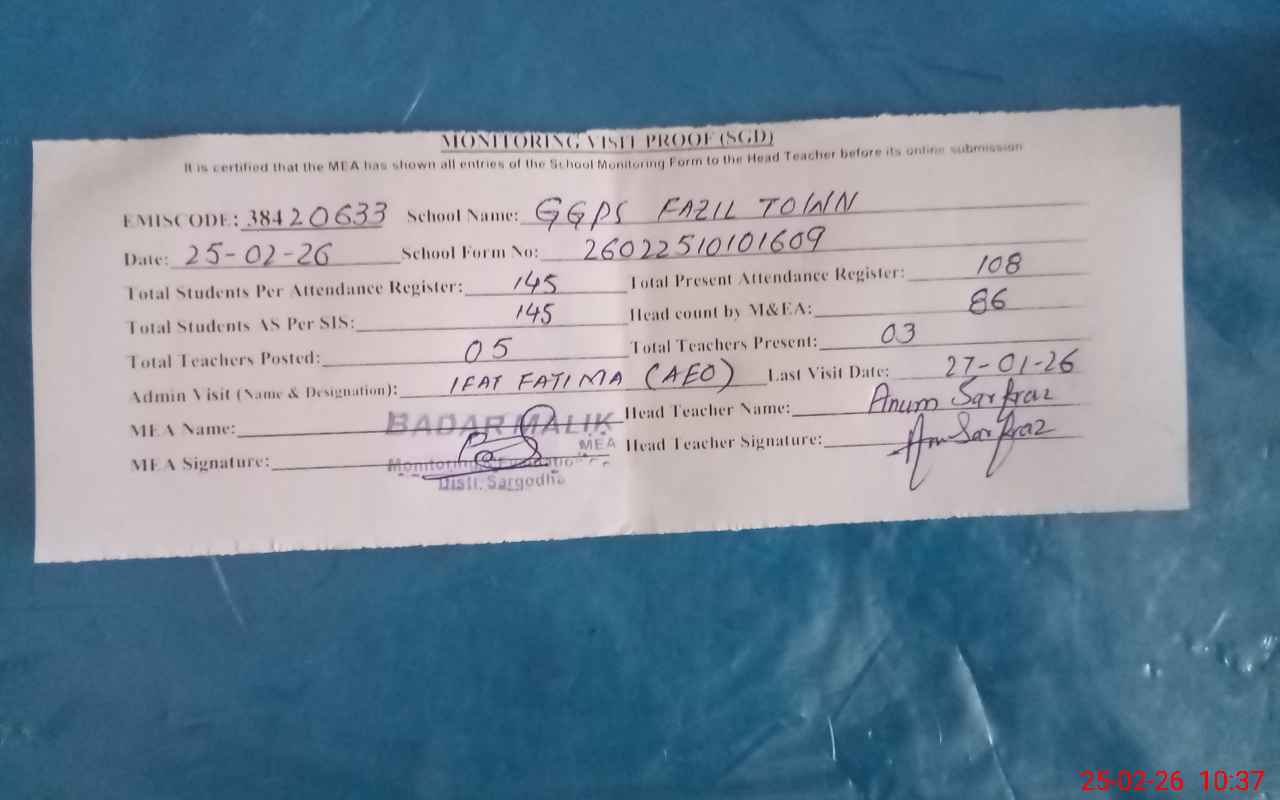 MONITORING VISIT PROOF (SGD)
It is certified that the MEA has shown all entries of the School Monitoring Form to the Head Teacher before its online submission
EMISCODE: 38420633 School Name: GGPS FAZIL TOWN
Date: 25-02-26 School Form No: 26022510101609
Total Students Per Attendance Register: 145 Total Present Attendance Register: 108
Total Students AS Per SIS: 145 Head count by M&EA: 86
Total Teachers Posted: 05 Total Teachers Present: 03
Admin Visit (Name & Designation): IFAT FATIMA (AEO) Last Visit Date: 27-01-26
MEA Name: BADAR MALIK Head Teacher Name: Anum Sarfraz
MEA
MEA Signature: Monitoring & Head Teacher Signature: Anum Sarfraz
Distt. Sargodha
25-02-26 10:37